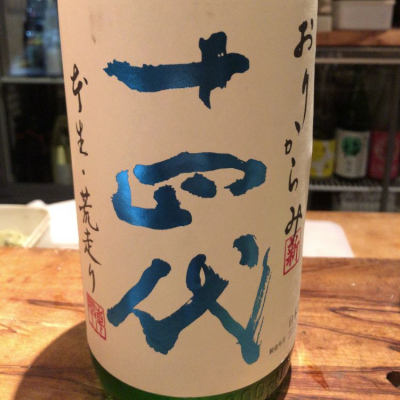 おりからみ
新
十四代
本生・荒走り